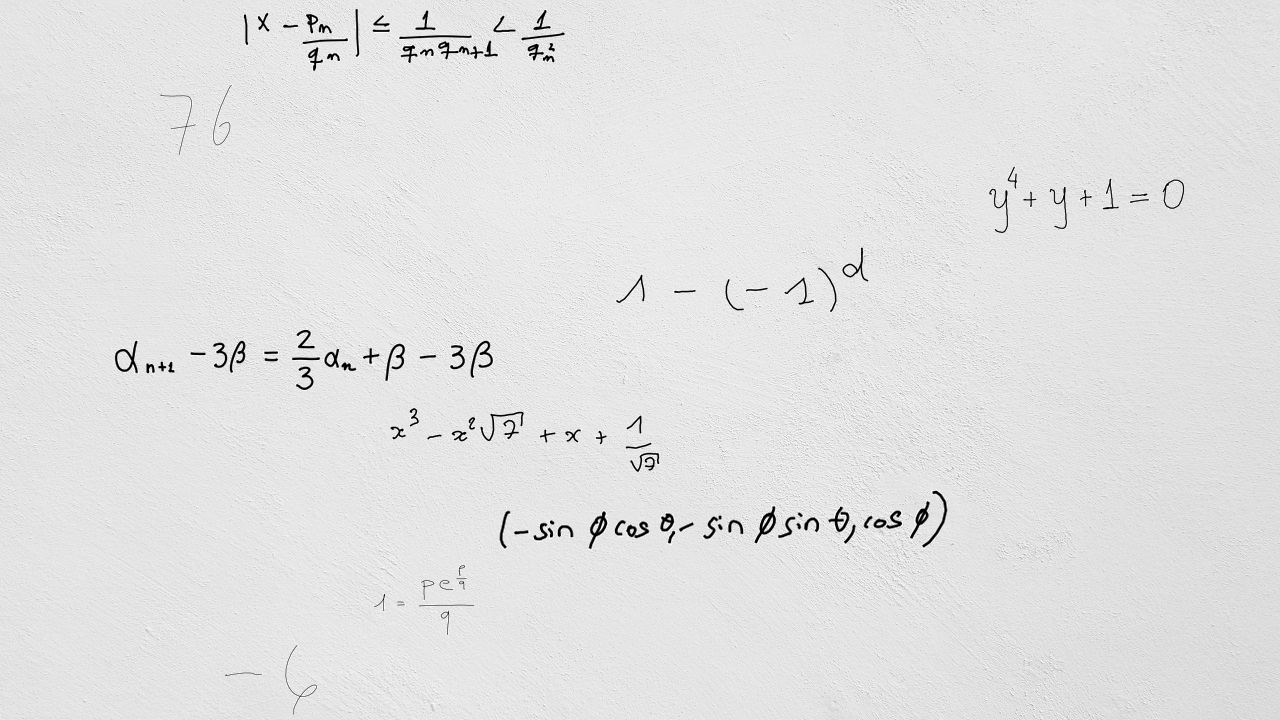 |x - \frac{p_n}{q_n}| \le \frac{1}{q_n q_{n+1}} < \frac{1}{q_n^2}
76
y^4 + y + 1 = 0
1 - (-1)^α
α_{n+1} - 3β = \frac{2}{3} α_n + β - 3β
x^3 - x^2 \sqrt{7} + x + \frac{1}{\sqrt{7}}
(-sin ϕ cos θ, - sin ϕ sin θ, cos ϕ)
1 = \frac{p e^{\frac{p}{q}}}{q}
-6